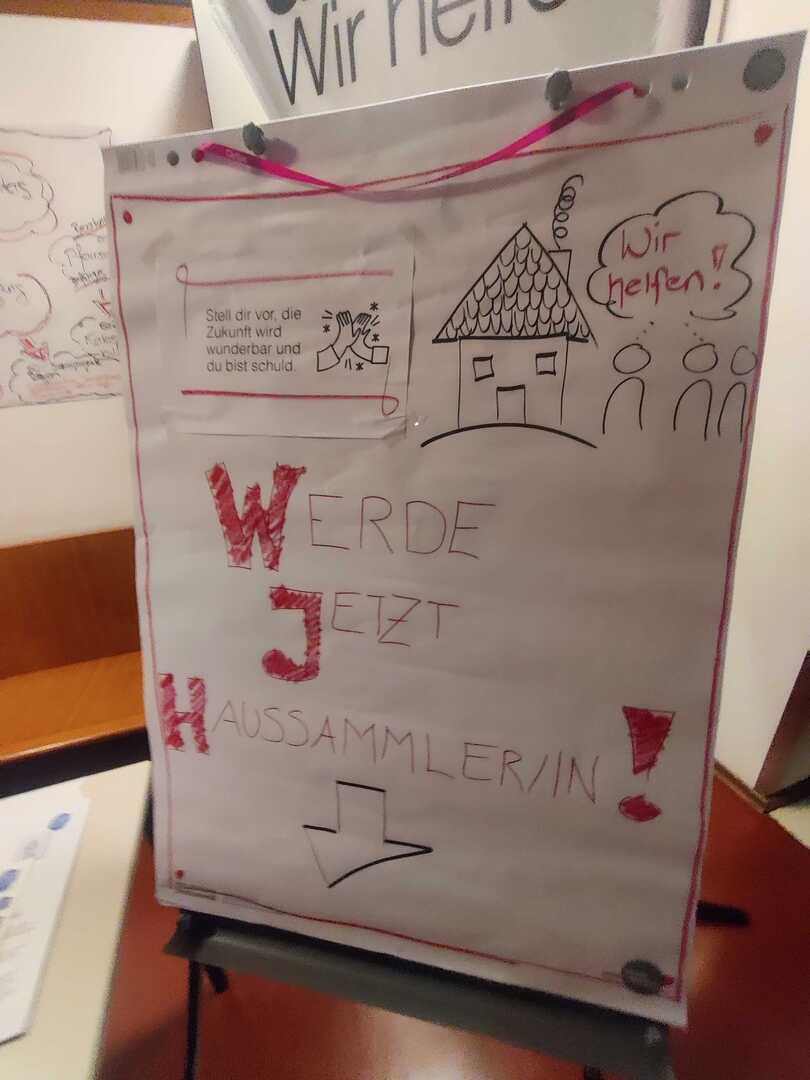 Wir helfen
Stell dir vor, die
Zukunft wird
wunderbar und
du bist schuld.
Wir
helfen!
WERDE
JETZT
HAUSSAMMLER/IN!